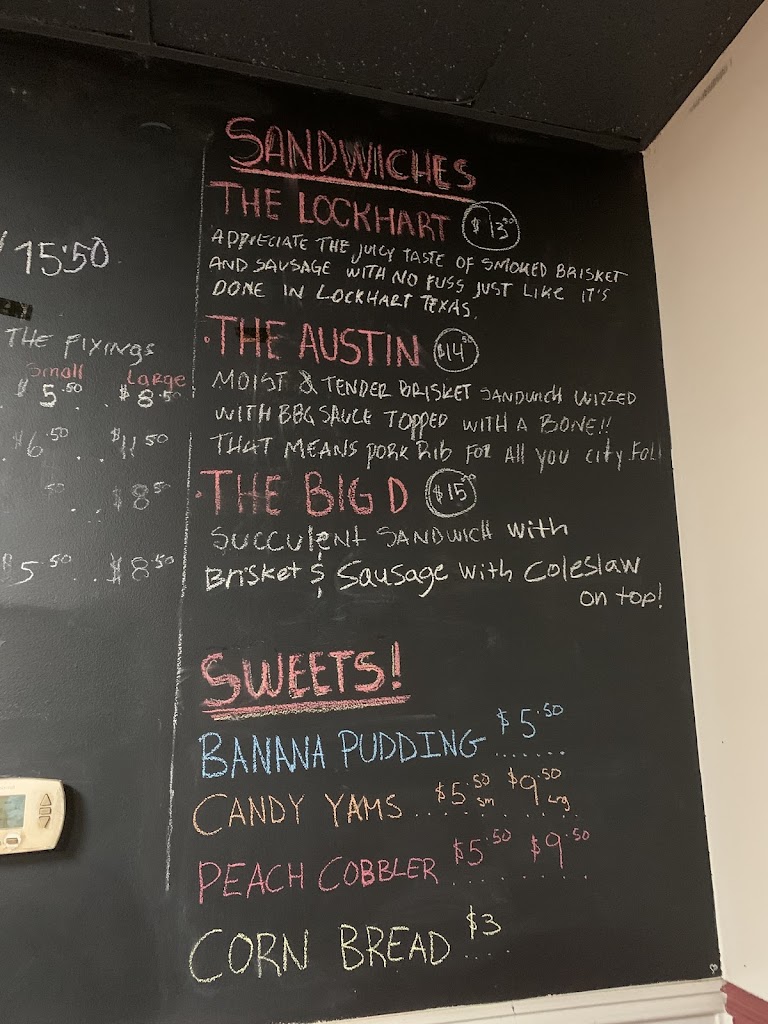 $15.50
THE FIXINGS
Small Large
$5.50 . . $8.50
$6.50 . . $11.50
.50 . . $8.50
$5.50 . . $8.50
SANDWICHES
THE LOCKHART $13.50
APPRECIATE THE JUICY TASTE OF SMOKED BRISKET
AND SAUSAGE WITH NO FUSS JUST LIKE IT'S
DONE IN LOCKHART TEXAS.
·THE AUSTIN $14.50
MOIST & TENDER BRISKET SANDWICH WIZZED
WITH BBQ SAUCE TOPPED WITH A BONE!!
THAT MEANS PORK RIB FOR All you city Fol
·THE BIG D $15.50
SUCCULENT SANDWICH with
Brisket & Sausage with Coleslaw
on top!
SWEETS!
BANANA PUDDING $5.50
CANDY YAMS $5.50 sm $9.50 Lrg
PEACH COBBLER $5.50 $9.50
CORN BREAD $3